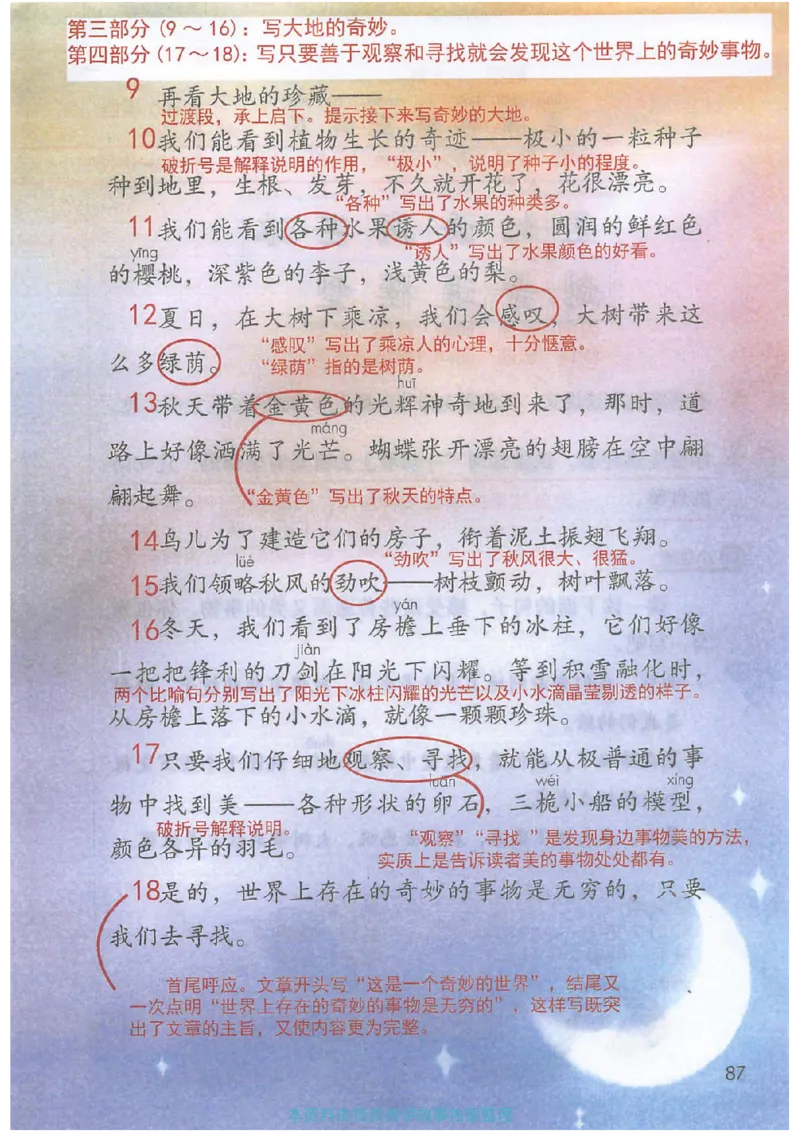 第三部分(9～16)：写大地的奇妙。
第四部分(17～18)：写只要善于观察和寻找就会发现这个世界上的奇妙事物。
9 再看大地的珍藏——
过渡段，承上启下。提示接下来写奇妙的大地。
10我们能看到植物生长的奇迹——极小的一粒种子
破折号是解释说明的作用，“极小”，说明了种子小的程度。
种到地里，生根、发芽，不久就开花了，花很漂亮。
“各种”写出了水果的种类多。
11我们能看到各种水果诱人的颜色，圆润的鲜红色
yīng
“诱人”写出了水果颜色的好看。
的樱桃，深紫色的李子，浅黄色的梨。
12夏日，在大树下乘凉，我们会感叹，大树带来这
“感叹”写出了乘凉人的心理，十分惬意。
么多绿荫。
“绿荫”指的是树荫。
huī
13秋天带着金黄色的光辉神奇地到来了，那时，道
máng
路上好像洒满了光芒。蝴蝶张开漂亮的翅膀在空中翩
翩起舞。
“金黄色”写出了秋天的特点。
14鸟儿为了建造它们的房子，衔着泥土振翅飞翔。
lüè
“劲吹”写出了秋风很大、很猛。
15我们领略秋风的劲吹——树枝颤动，树叶飘落。
yán
16冬天，我们看到了房檐上垂下的冰柱，它们好像
jiàn
一把把锋利的刀剑在阳光下闪耀。等到积雪融化时，
两个比喻句分别写出了阳光下冰柱闪耀的光芒以及小水滴晶莹剔透的样子。
从房檐上落下的小水滴，就像一颗颗珍珠。
17只要我们仔细地观察、寻找，就能从极普通的事
luǎn wéi xíng
物中找到美——各种形状的卵石，三桅小船的模型，
破折号解释说明。
颜色各异的羽毛。
“观察”“寻找 ”是发现身边事物美的方法，
实质上是告诉读者美的事物处处都有。
18是的，世界上存在的奇妙的事物是无穷的，只要
我们去寻找。
首尾呼应。文章开头写“这是一个奇妙的世界”，结尾又
一次点明“世界上存在的奇妙的事物是无穷的”，这样写既突
出了文章的主旨，又使内容更为完整。
87